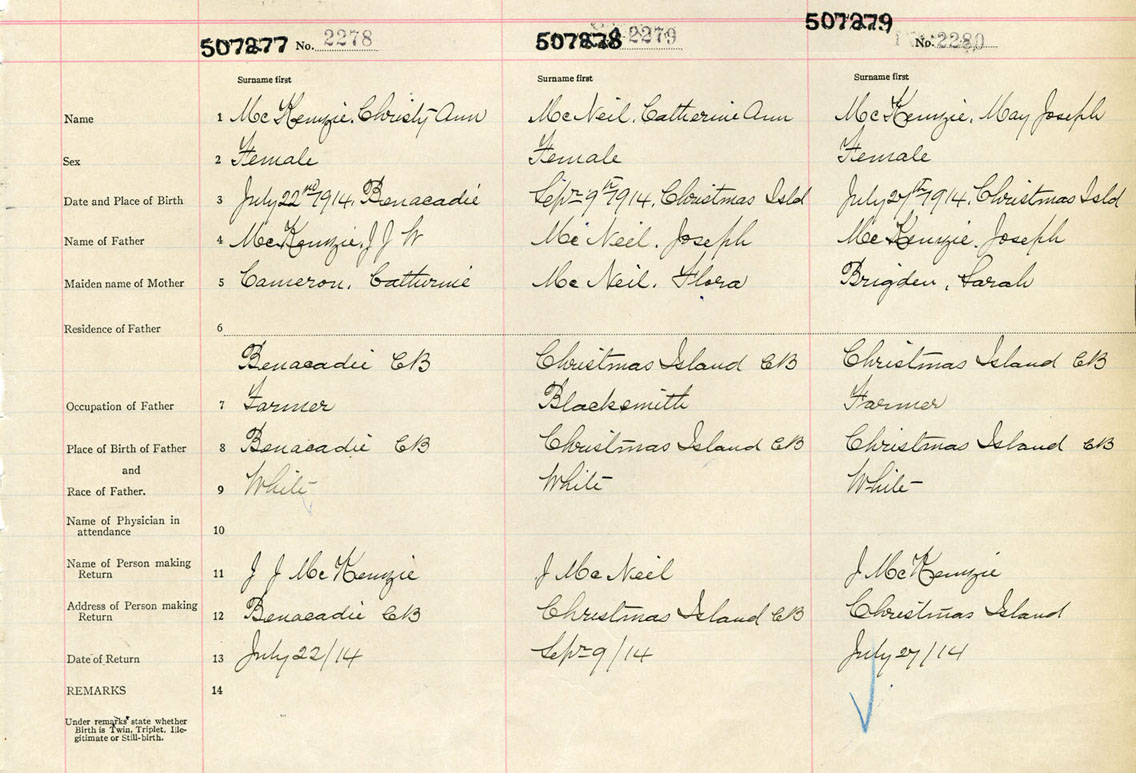 507277 No. 2278 507278 2279 507279 No. 2280
Surname first Surname first Surname first
Name 1 McKenzie, Christy Ann McNeil, Catherine Ann McKenzie, May Joseph
Sex 2 Female Female Female
Date and Place of Birth 3 July 22nd 1914, Benacadie Sept 9th 1914, Christmas Isld July 27th 1914, Christmas Isld
Name of Father 4 McKenzie, J J W McNeil, Joseph McKenzie, Joseph
Maiden name of Mother 5 Cameron, Catherine McNeil, Flora Brigden, Sarah
Residence of Father 6
Benacadie CB Christmas Island CB Christmas Island CB
Occupation of Father 7 Farmer Blacksmith Farmer
Place of Birth of Father 8 Benacadie CB Christmas Island CB Christmas Island CB
and
Race of Father. 9 White White White
Name of Physician in
attendance 10
Name of Person making
Return 11 J J McKenzie J McNeil J McKenzie
Address of Person making
Return 12 Benacadie CB Christmas Island CB Christmas Island
Date of Return 13 July 22/14 Sept 9/14 July 27/14
REMARKS 14
Under remarks state whether
Birth is Twin, Triplet, Ille-
gitimate or Still-birth.